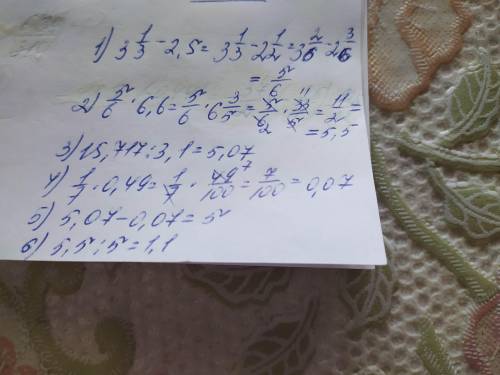 1) 3 1/3 - 2,5 = 3 1/3 - 2 1/2 = 3 2/6 - 2 3/6
= 5/6
2) 5/6 · 6,6 = 5/6 · 6 3/5 = 5/6 · 33/5 = 11/2 =
2 11
= 5,5
3) 15,717 : 3,1 = 5,07
4) 1/7 · 0,49 = 1/7 · 49/100 = 7/100 = 0,07
7
5) 5,07 - 0,07 = 5
6) 5,5 : 5 = 1,1